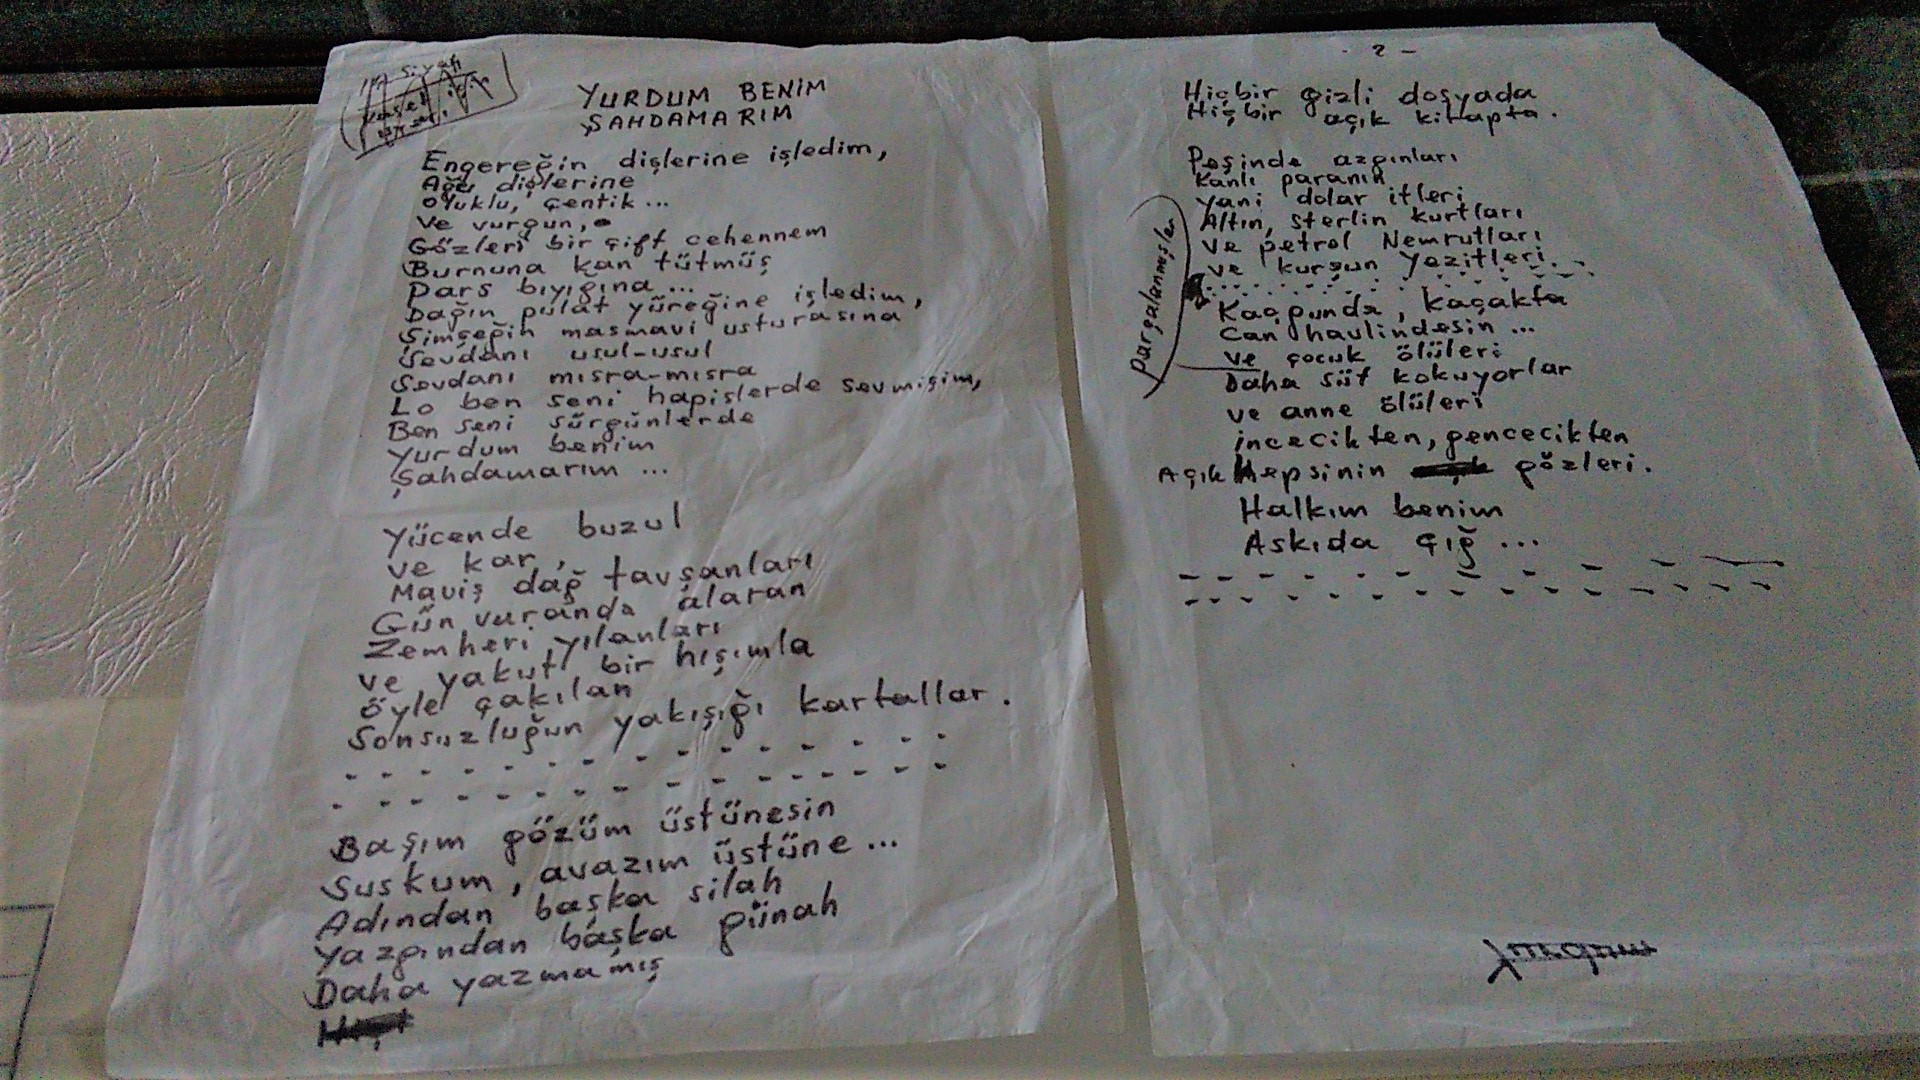 siyah
YURDUM BENİM
ŞAHDAMARIM
Engereğin dişlerine işledim,
Ağu dişlerine
Oluklu, çentik...
Ve vurgun,
Gözleri bir çift cehennem
Burnuna kan tütmüş
Pars bıyığına...
Dağın pulat yüreğine işledim,
Şimşeğin masmavi usturasına
Sevdanı usul-usul
Sevdanı mısra-mısra
Lo ben seni hapislerde sevmişim,
Ben seni sürgünlerde
Yurdum benim
Şahdamarım...
Yücende buzul
ve kar,
Maviş dağ tavşanları
Gün vuranda alaran
Zemheri yılanları
ve yakut bir hışımla
öyle çakılan
Sonsuzluğun yakışığı kartallar.
Başım gözüm üstünesin
Suskum, avazım üstüne...
Adından başka silah
Yazgından başka günah
Daha yazmamış
- 2 -
Hiçbir gizli dosyada
Hiçbir açık kitapta.
Peşinde azgınları
Kanlı paranın
Yani dolar itleri
Altın, sterlin kurtları
Ve petrol Nemrutları
ve kurşun Yezitleri.
Kaçgunda, kaçakta
Can havlindesin...
ve çocuk ölüleri
Parçalanmışlar
Daha süt kokuyorlar
ve anne ölüleri
incecikten, gencecikten
Açık Hepsinin gözleri.
Halkım benim
Askıda çığ...